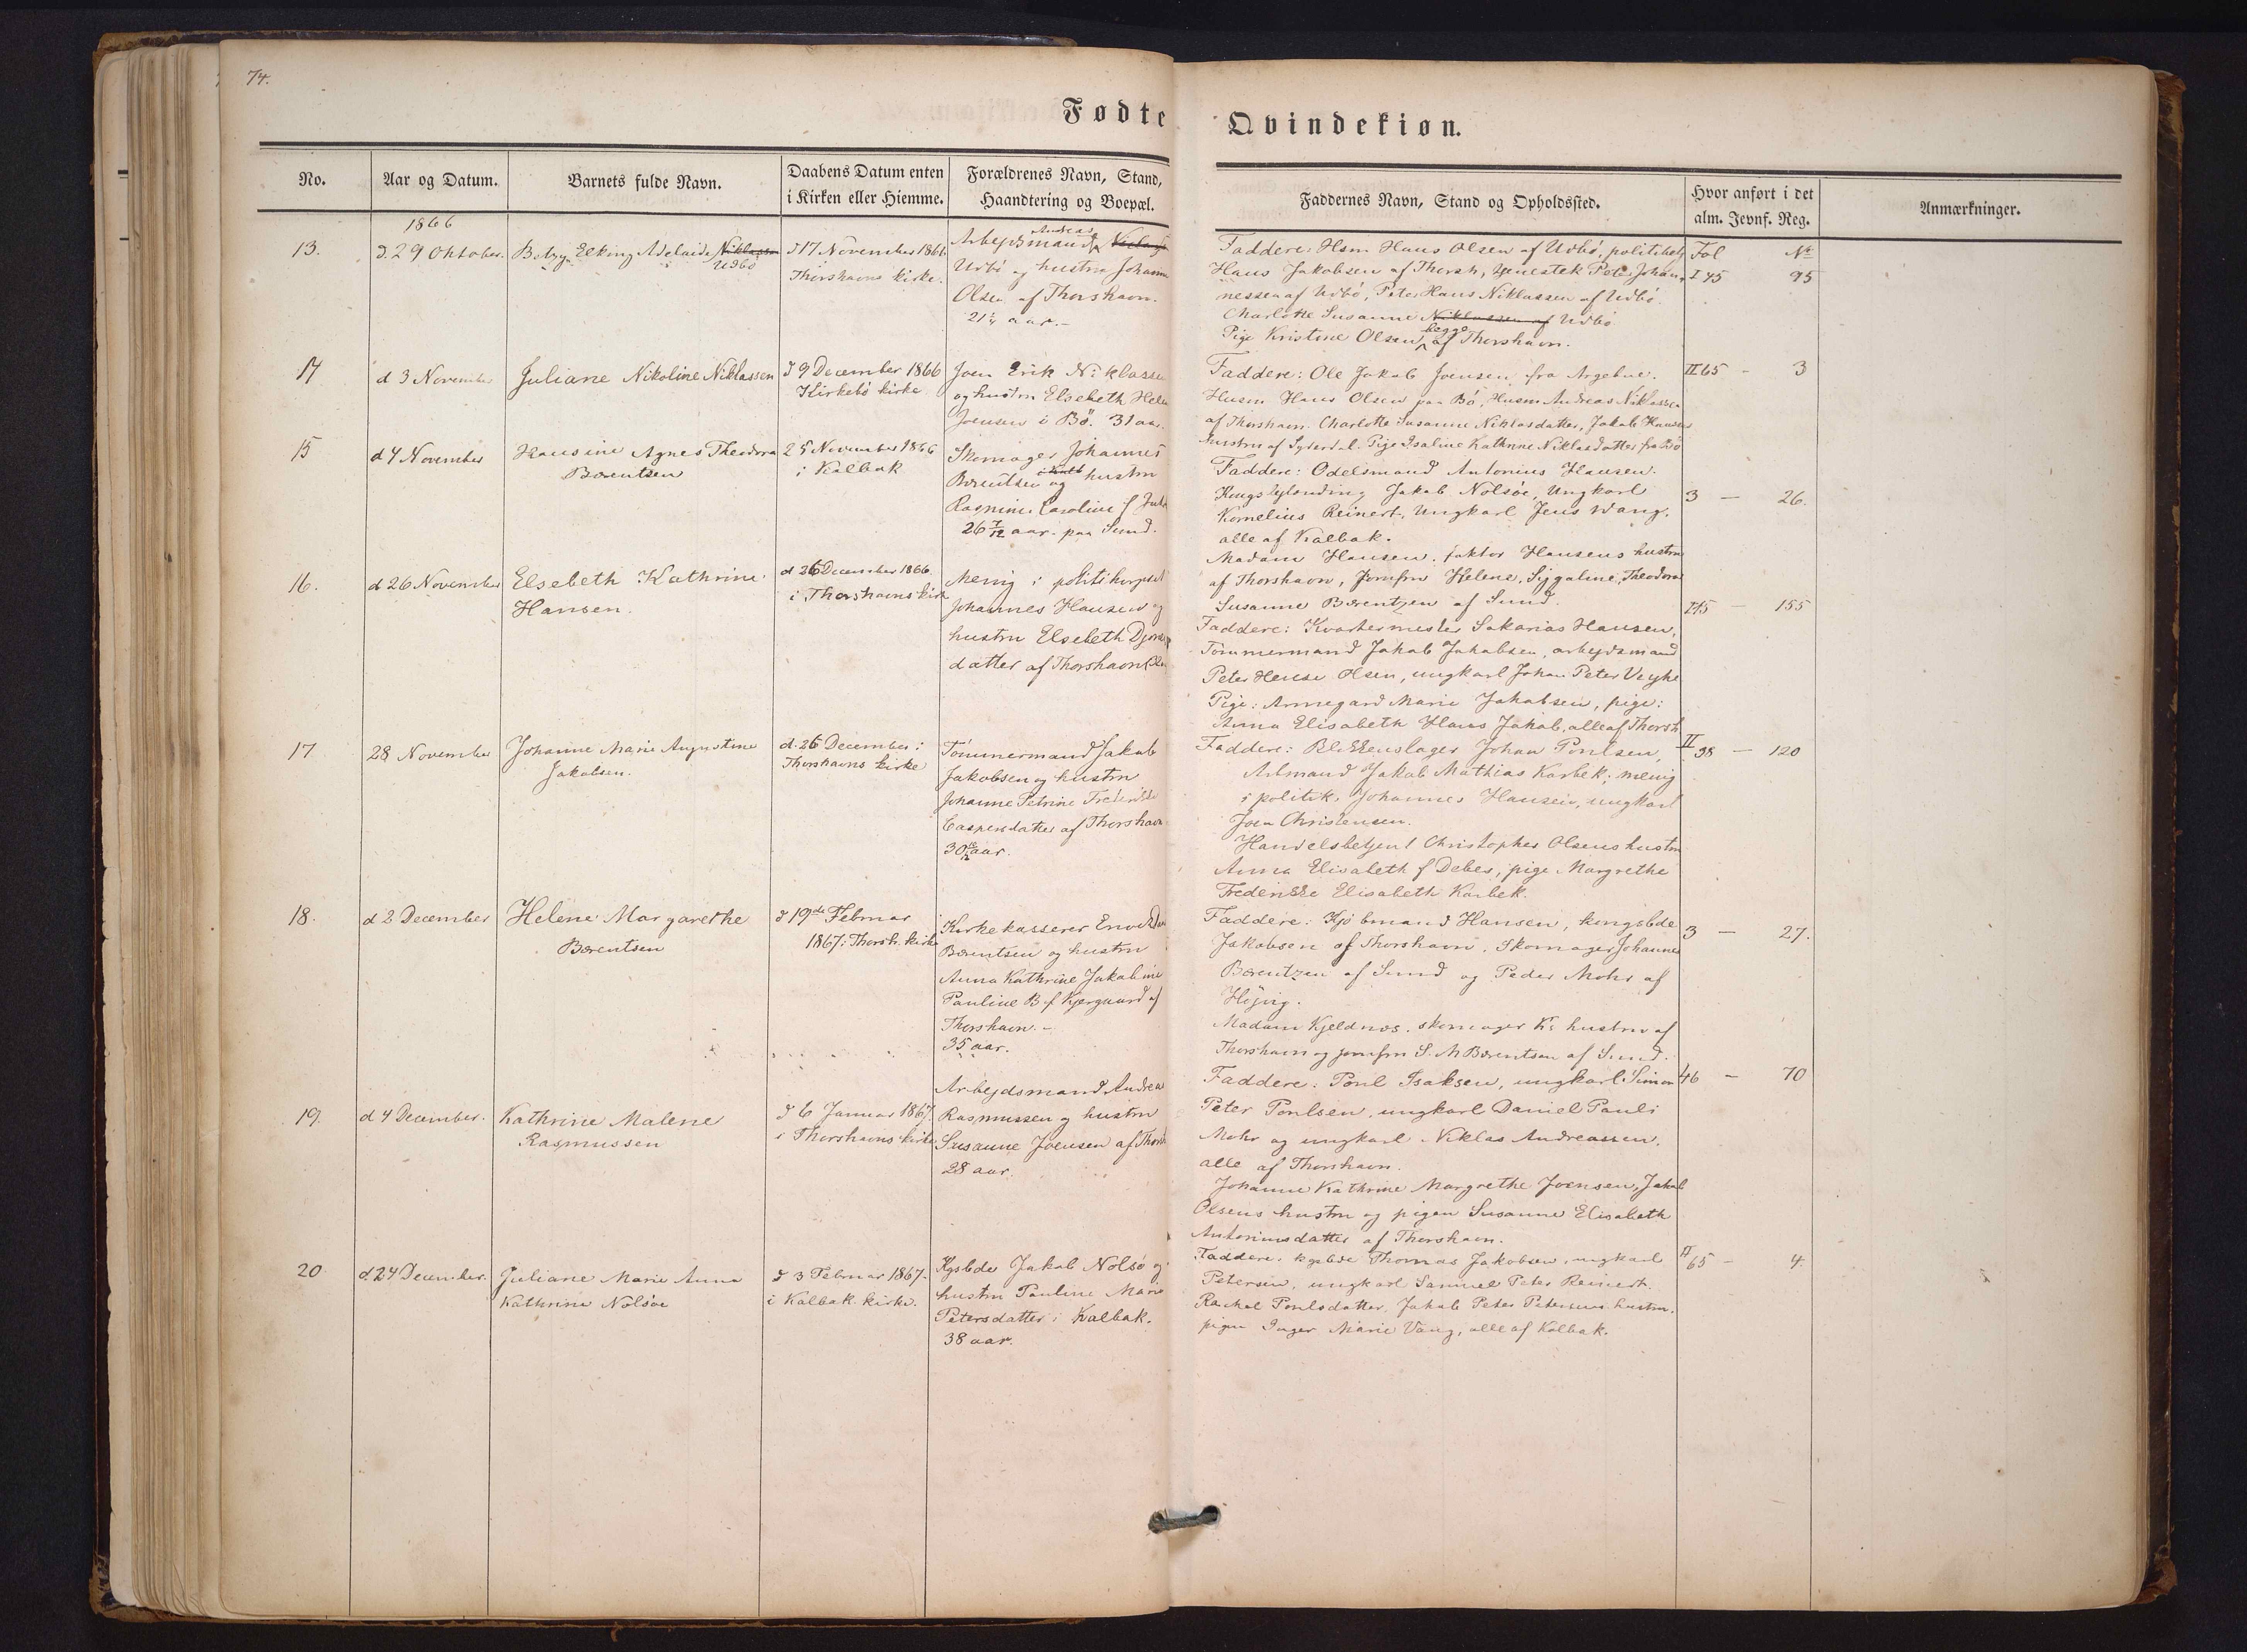 74.
Fødte
Qvindekiøn.
No.
Aar og Datum.
Barnets fulde Navn.
Daabens Datum enten
i Kirken eller Hiemme.
Forældrenes Navn, Stand,
Haandtering og Boepæl.
Faddernes Navn, Stand og Opholdssted.
Hvor anført i det
alm. Jevnf. Reg.
Anmærkninger.
1866
13.
d. 29 Oktober.
Betzy Elking Adelaide Niklassen
Udbø
d 17 November 1866
Thorshavns kirke.
Andreas
Arbejdsmand
Udbö og hustru Johanne
Olsen af Thorshavn.
21 aar.-
Faddere: Hsm Hans Olsen af Udbö, politibetj
Hans Jakobsen af Thorsh, Peter Johan-
nessen af Udbö, Peter Hans Niklassen af Udbö.
Charlotte Susanne Niklassen af Udbö
begge
Pige Kristine Olsen, af Thorshavn.
Fol No
I 45 95
14
d 3 November
Juliane Nikoline Niklassen
d 9 December 1866
Kirkebö kirke
Joen Erik Niklasse
og hustru Elsebeth Hele
Joensen i Bö. 31 aar.
Faddere: Ole Jakob Joensen fra Argebue.
Husm Hans Olsen paa Bö, Husm Andreas Niklassen
af Thorshavn. Charlotte Susanne Niklasdatter, Jakob Hansens
hustru af Syderdal. Pige Isaline Kathrine Niklasdatter fra Bö
II 65 - 3
15
d 4 November
Hansine Agnes Theodora
Bærentsen
25 November 1866
i Kalbak
Skomager Johannes
Bærentsen og hustru
Rasmine Caroline f
26 7/12 aar. paa Sund.
Faddere: Odelsmand Antonius Hansen.
Jakob Nolsöe, Ungkarl
Kornelius Reinert, Ungkarl Jens Wang,
alle af Kalbak.
Madam Hansen, faktor Hansens hustru
af Thorshavn, Jomfru Helene, Sigaline, Theodora
Susanne Bærentzen af Sund.
3 — 26.
16.
d 26 November
Elsebeth Kathrine
Hansen.
d 26 December 1866.
i Thorshavns kirk
Menig i politikorpset
Johannes Hansen og
hustru Elsebeth
datter af Thorshavn
I 45 — 155
Faddere: Kvartermester Sakarias Hansen,
Tömmermand Jakob Jakobsen, arbejdsmand
Peter Olsen, ungkarl Johan Peter Veyhe
Pige: Armegard Marie Jakobsen, pige:
Anna Elisabeth Hans Jakob, alle af Thorsh
17
28 November
Johanne Marie Augustine
Jakobsen.
d. 26 December i
Thorshavns kirke
Tömmermand Jakob
Jakobsen og hustru
Johanne Petrine Frederikke
Caspersdatter af Thorshavn
30 aar.
Faddere: Blikkenslager Johan Poulsen,
Jakob Mathias Karbek, menig
i politik. Johannes Hansen, ungkarl
Joen Christensen.
Handelsbetjent Christopher Olsens hustru
Anna Elisabeth f Debes, pige Margrethe
Frederikke Elisabeth Karbek.
II 38 — 120
18.
d 2 December
Helene Margarethe
Bærentsen
d 19de Februar
1867 i Thorsh. kirke
Kirkekasserer Enok
Bærentsen og hustru
Anna Kathrine Jakobine
Pauline B. f. Kjergaard af
Thorshavn.-
35 aar.
Faddere: Kjöbmand Hansen, kongsbde
Jakobsen af Thorshavn, Skomager Johannes
Bærentzen af Sund og Peder Mohr af
Höjvig.
Madam Kjeldnæs, skomager K's hustru af
Thorshavn og jomfru S. M Bærentsen af Sund.
3 — 27.
19.
d 4 December.
Kathrine Malene
Rasmussen
d 6 Januar 1867.
i Thorshavns kirke
Arbejdsmand Andrea
Rasmussen og hustru
Susanne Joensen af Thorsh
28 aar
Faddere: Poul Isaksen, ungkarl Simon
Peter Poulsen, ungkarl Daniel Pauli
Mohr og ungkarl Niklas Andreassen.
alle af Thorshavn.
Johanne Kathrine Margrethe Joensen, Jakob
Olsens hustru og pigen Susanne Elisabeth
Antoniusdatter af Thorshavn.
46 — 70
20
d. 24 December.
Juliane Marie Anna
Kathrine Nolsöe
d 3 Februar 1867.
i Kalbak kirke.
Kgsbde Jakob Nolsö og
hustru Pauline Marie
Petersdatter i Kalbak.
38 aar.
Faddere: kgsbde Thomas Jakobsen, ungkarl
Petersen, ungkarl Samuel Peter Reinert.
Rachel Poulsdatter, Jakob Peter Petersens hustru.
pigen Inger Marie Vang, alle af Kalbak.
II 65 — 4